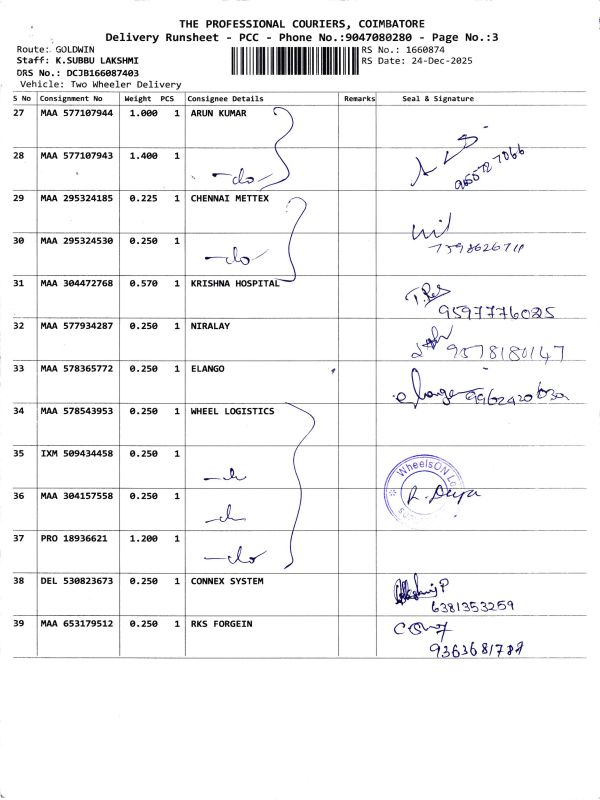 THE PROFESSIONAL COURIERS, COIMBATORE
Delivery Runsheet - PCC - Phone No.:9047080280 - Page No.:3
Route: GOLDWIN
RS No.: 1660874
Staff: K.SUBBU LAKSHMI
RS Date: 24-Dec-2025
DRS No.: DCJB166087403
Vehicle: Two Wheeler Delivery
S No Consignment No Weight PCS Consignee Details Remarks Seal & Signature
27 MAA 577107944 1.000 1 ARUN KUMAR
28 MAA 577107943 1.400 1 -do-
29 MAA 295324185 0.225 1 CHENNAI METTEX
30 MAA 295324530 0.250 1 -do-
31 MAA 304472768 0.570 1 KRISHNA HOSPITAL
9597776025
32 MAA 577934287 0.250 1 NIRALAY
9578180147
33 MAA 578365772 0.250 1 ELANGO
34 MAA 578543953 0.250 1 WHEEL LOGISTICS
35 IXM 509434458 0.250 1
WheelsON
36 MAA 304157558 0.250 1
37 PRO 18936621 1.200 1 -do
38 DEL 530823673 0.250 1 CONNEX SYSTEM
6381353259
39 MAA 653179512 0.250 1 RKS FORGEIN